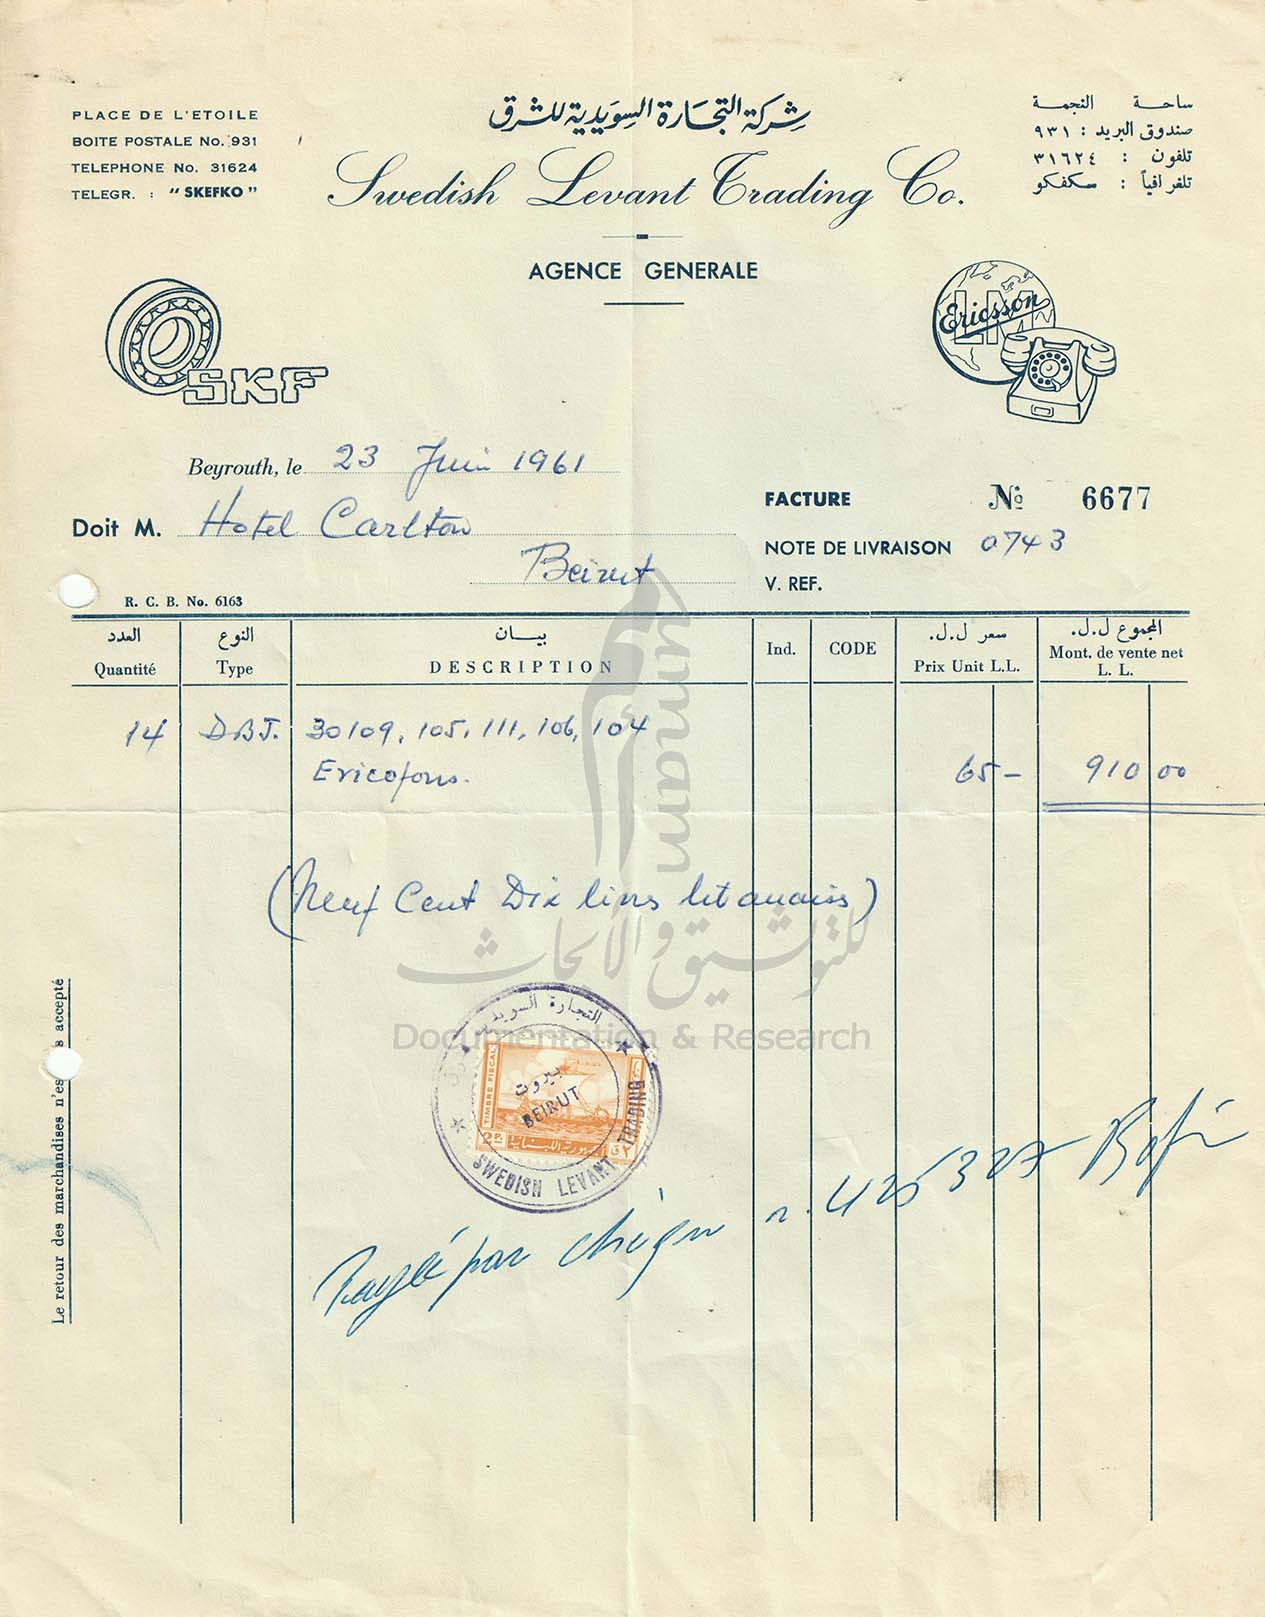 PLACE DE L'ETOILE
BOITE POSTALE No. 931
TELEPHONE No. 31624
TELEGR. : "SKEFKO"
شركة التجارة السويدية للشرق
Swedish Levant Trading Co.
AGENCE GENERALE
ساحة النجمة
صندوق البريد : ٩٣١
تلفون : ٣١٦٢٤
تلغرافياً : سكفكو
SKF
LM Ericsson
Beyrouth, le 23 Juin 1961
Doit M. Hotel Carlton
Beirut
FACTURE № 6677
NOTE DE LIVRAISON 0743
V. REF.
R. C. B. No. 6163
العدد النوع بيان سعر ل.ل. المجموع ل.ل.
Quantité Type DESCRIPTION Ind. CODE Prix Unit L.L. Mont. de vente net L. L.
14 DBJ. 30109, 105, 111, 106, 104
Ericofons. 65- 910 00
(Neuf Cent Dix livres libanaises)
umam
للتوثيق والأبحاث
Documentation & Research
التجارة السويدية
TIMBRE FISCAL
بيروت
BEIRUT
الجمهورية اللبنانية
SWEDISH LEVANT TRADING
Payé par chèque n. 425327
Le retour des marchandises n'es s accepté